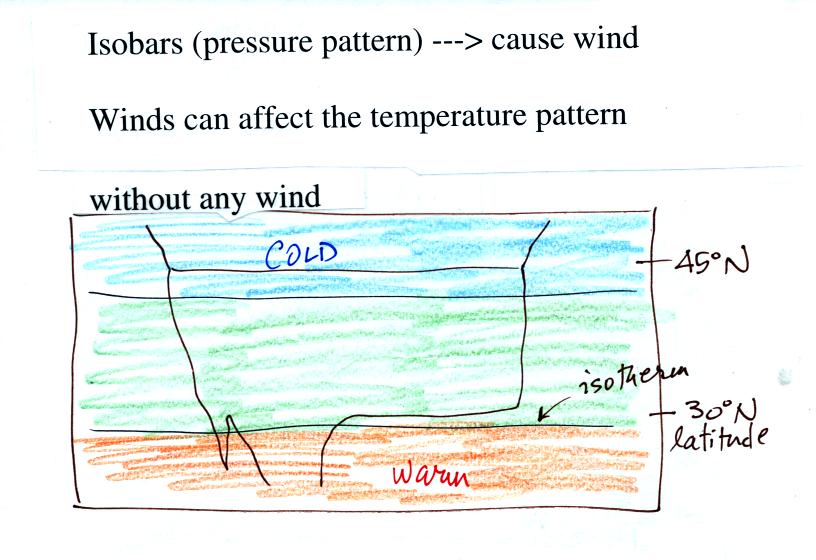 Isobars (pressure pattern) ---> cause wind
Winds can affect the temperature pattern
without any wind
COLD
45°N
isotherm
30°N
latitude
warm